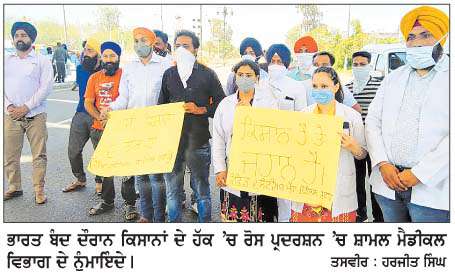 ਕਿਸਾਨ ਹੈ ਤਾਂ
ਜਹਾਨ ਹੈ।
ਭਾਰਤ ਬੰਦ ਦੌਰਾਨ ਕਿਸਾਨਾਂ ਦੇ ਹੱਕ ’ਚ ਰੋਸ ਪ੍ਰਦਰਸ਼ਨ ’ਚ ਸ਼ਾਮਲ ਮੈਡੀਕਲ
ਵਿਭਾਗ ਦੇ ਨੁੰਮਾਇੰਦੇ। ਤਸਵੀਰ : ਹਰਜੀਤ ਸਿੰਘ